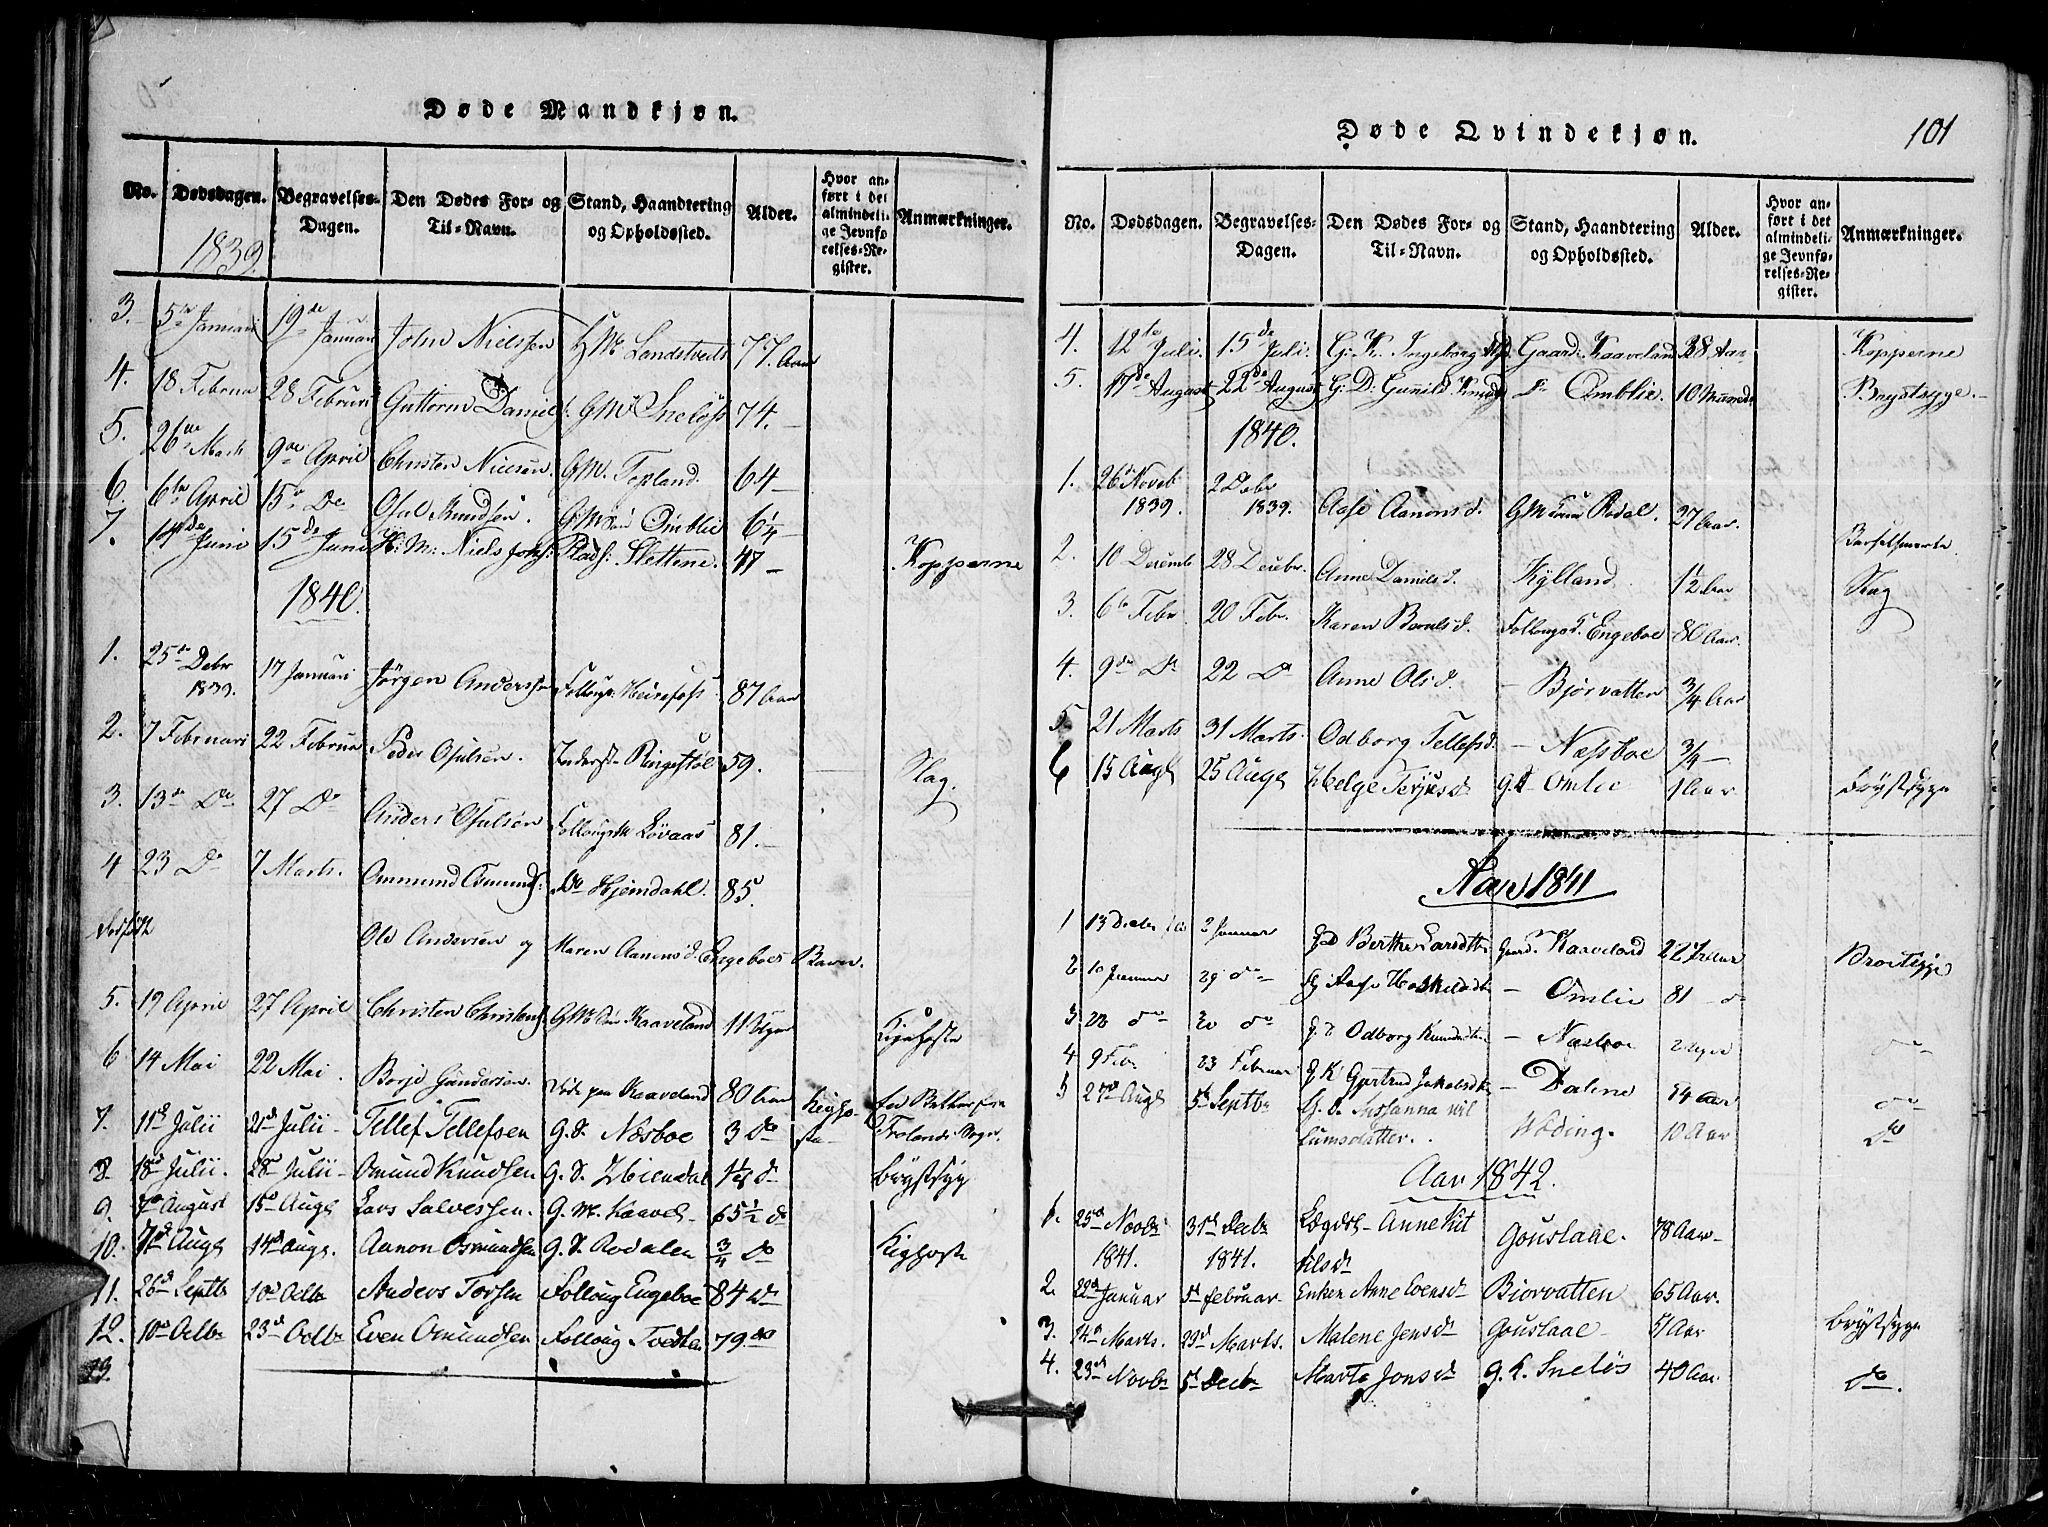 Døde Mandkjøn.
No. Dødsdagen. Begravelses-Dagen. Den Dødes For- og Til-Navn. Stand, Haandtering og Opholdssted. Alder. Hvor anført i det almindelige Jevnførelses-Register. Anmærkninger.
1839.
3. 5te Januari 19de Januari John Nielssen GM. Landstveds 77. Aar
4. 18 Februa 28 Februari Guttorm Daniels: GM. Sneløss 74. —
5. 26de Marts 9de April Christen Nielsen. GM. Tepland. 64 —
6. 6te April 15de De Osul Knudsen. GM Søn Omblie 6¼
7. 14de Juni 15de Juni H: M: Niels Johs: Plads: Slettene. 47 — Kopperne
1840.
1. 25de Debr 1839. 17 Januari Jørgen Anderssen Follougs: Heirefoss. 87 Aar
2. 7 Februari 22 Februa Peder Osulsen. Inderst Ringestøl 59. Slag.
3. 13de De 27 Do Anders Osulsen Follougsm Løvaas 81. —
4 23 Do 7 Marts. Ammund Osmunds: Do Hjemdahl. 85.
Dødfødt Ole Andersen og Maren Aanensd. Engeboes Barn.
5. 19 April 27 April Christen Christens: GM Søn Kaaveland 11 Uger Kighoste
6 14 Mai 22 Mai. Borje Gundersen. Døde paa Kaaveland 80 Aar
7. 11te Julii 21de Julii — Tellef Tellefsen G.S. Næsboe 3 Do Kighoste Frolands Sogn.
8. 18d Julii. 28d Julii — Omund Knudsen G. S. Hiemdal 1¼ d Brystsyg
9. 7de August 15d Augt Lars Salvessen. G. M. Kaavel- 65½ do
10. 7d Augt 14d Augt. Aanon Osmundsen G. S. Rodalen ¾ Do Kighoste
11. 26d Septb 10d Octb Anders Torsen Folloug Engeboe 84 do
12. 10d Octbr 23d Octbr Even Omundsen Folloug Tvedten 79. do
13
Døde Qvindekjøn.
101
No. Dødsdagen. Begravelses-Dagen. Den Dødes For- og Til-Navn. Stand, Haandtering og Opholdssted. Alder. Hvor anført i det almindelige Jevnførelses-Register. Anmærkninger.
4. 12te Juli. 15de Juli. G: K. Ingeborg Gaard: Kaaveland 38 Aar Kopperne
5. 17de August 22de August G: D: Gunild Knuds Do Omblie. 10 Maaneder Brystsyge. —
1840.
1. 26 Novb 1839. 2 Debr 1839. Aase Aanonsd. GM Rodal. 27 Aar. Barselsmerte.
2. 10 Decemb 28 Decebr. Anne Daniels d. Kylland. ½ Aar Slag
3. 6te Febr. 20 Febr. Karen Berntsd. Follougsd. Engeboe 80 Aar.
4. 9de Do 22 Do Anne Olsd. — Bjørvatten ¾ Aar
5. 21 Marts 31 Marts. Odborg Tellefsd. — Næssboe ¾ —
6 15 Augt 25 Augt Helge Terjesd. G.D Omlie 1 Aar Brystsyge
Aar 1841
1 13 Decbr 2 Januar Berthe Larsdtr. Gaard. Kaaveland 22 Aar Brøstsyge
2 10 Januar 29 do Aase Hoskelsdtr — Omlie 81 — do
3 22 do 30 do G. D Odborg Knudsdtr. — Næsboe 2 Uger do
4 9 Feb 23 Februar G K Gjertrud Jakobsdtr — Dalene 74 Aar do
5 27d Augt 5d Septbr G. d. Sussanna Villumsdatter. Wæding. 10 Aar Do
Aar 1842.
1. 25d Novbr 1841. 31d Decbr 1841. Lægdsl. Anne Kittilsdr Gouslaae. 78 Aar —
2. 22d Januar 5d Februar. Enken Anne Evensdr Biorvatten 65 Aar.
3. 14d Marts. 23d Marts. Malene Jensdr Gouslaae — 51 Aar Brystsyge
4. 23d Novbr 5d Decbr Marte Jonsdr G. K. Sneløs 40 Aar do.